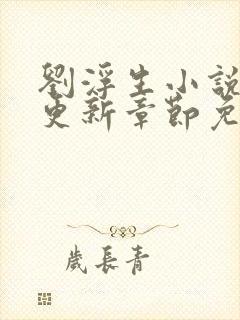 劉浮生小說
更新章節免
歲長青